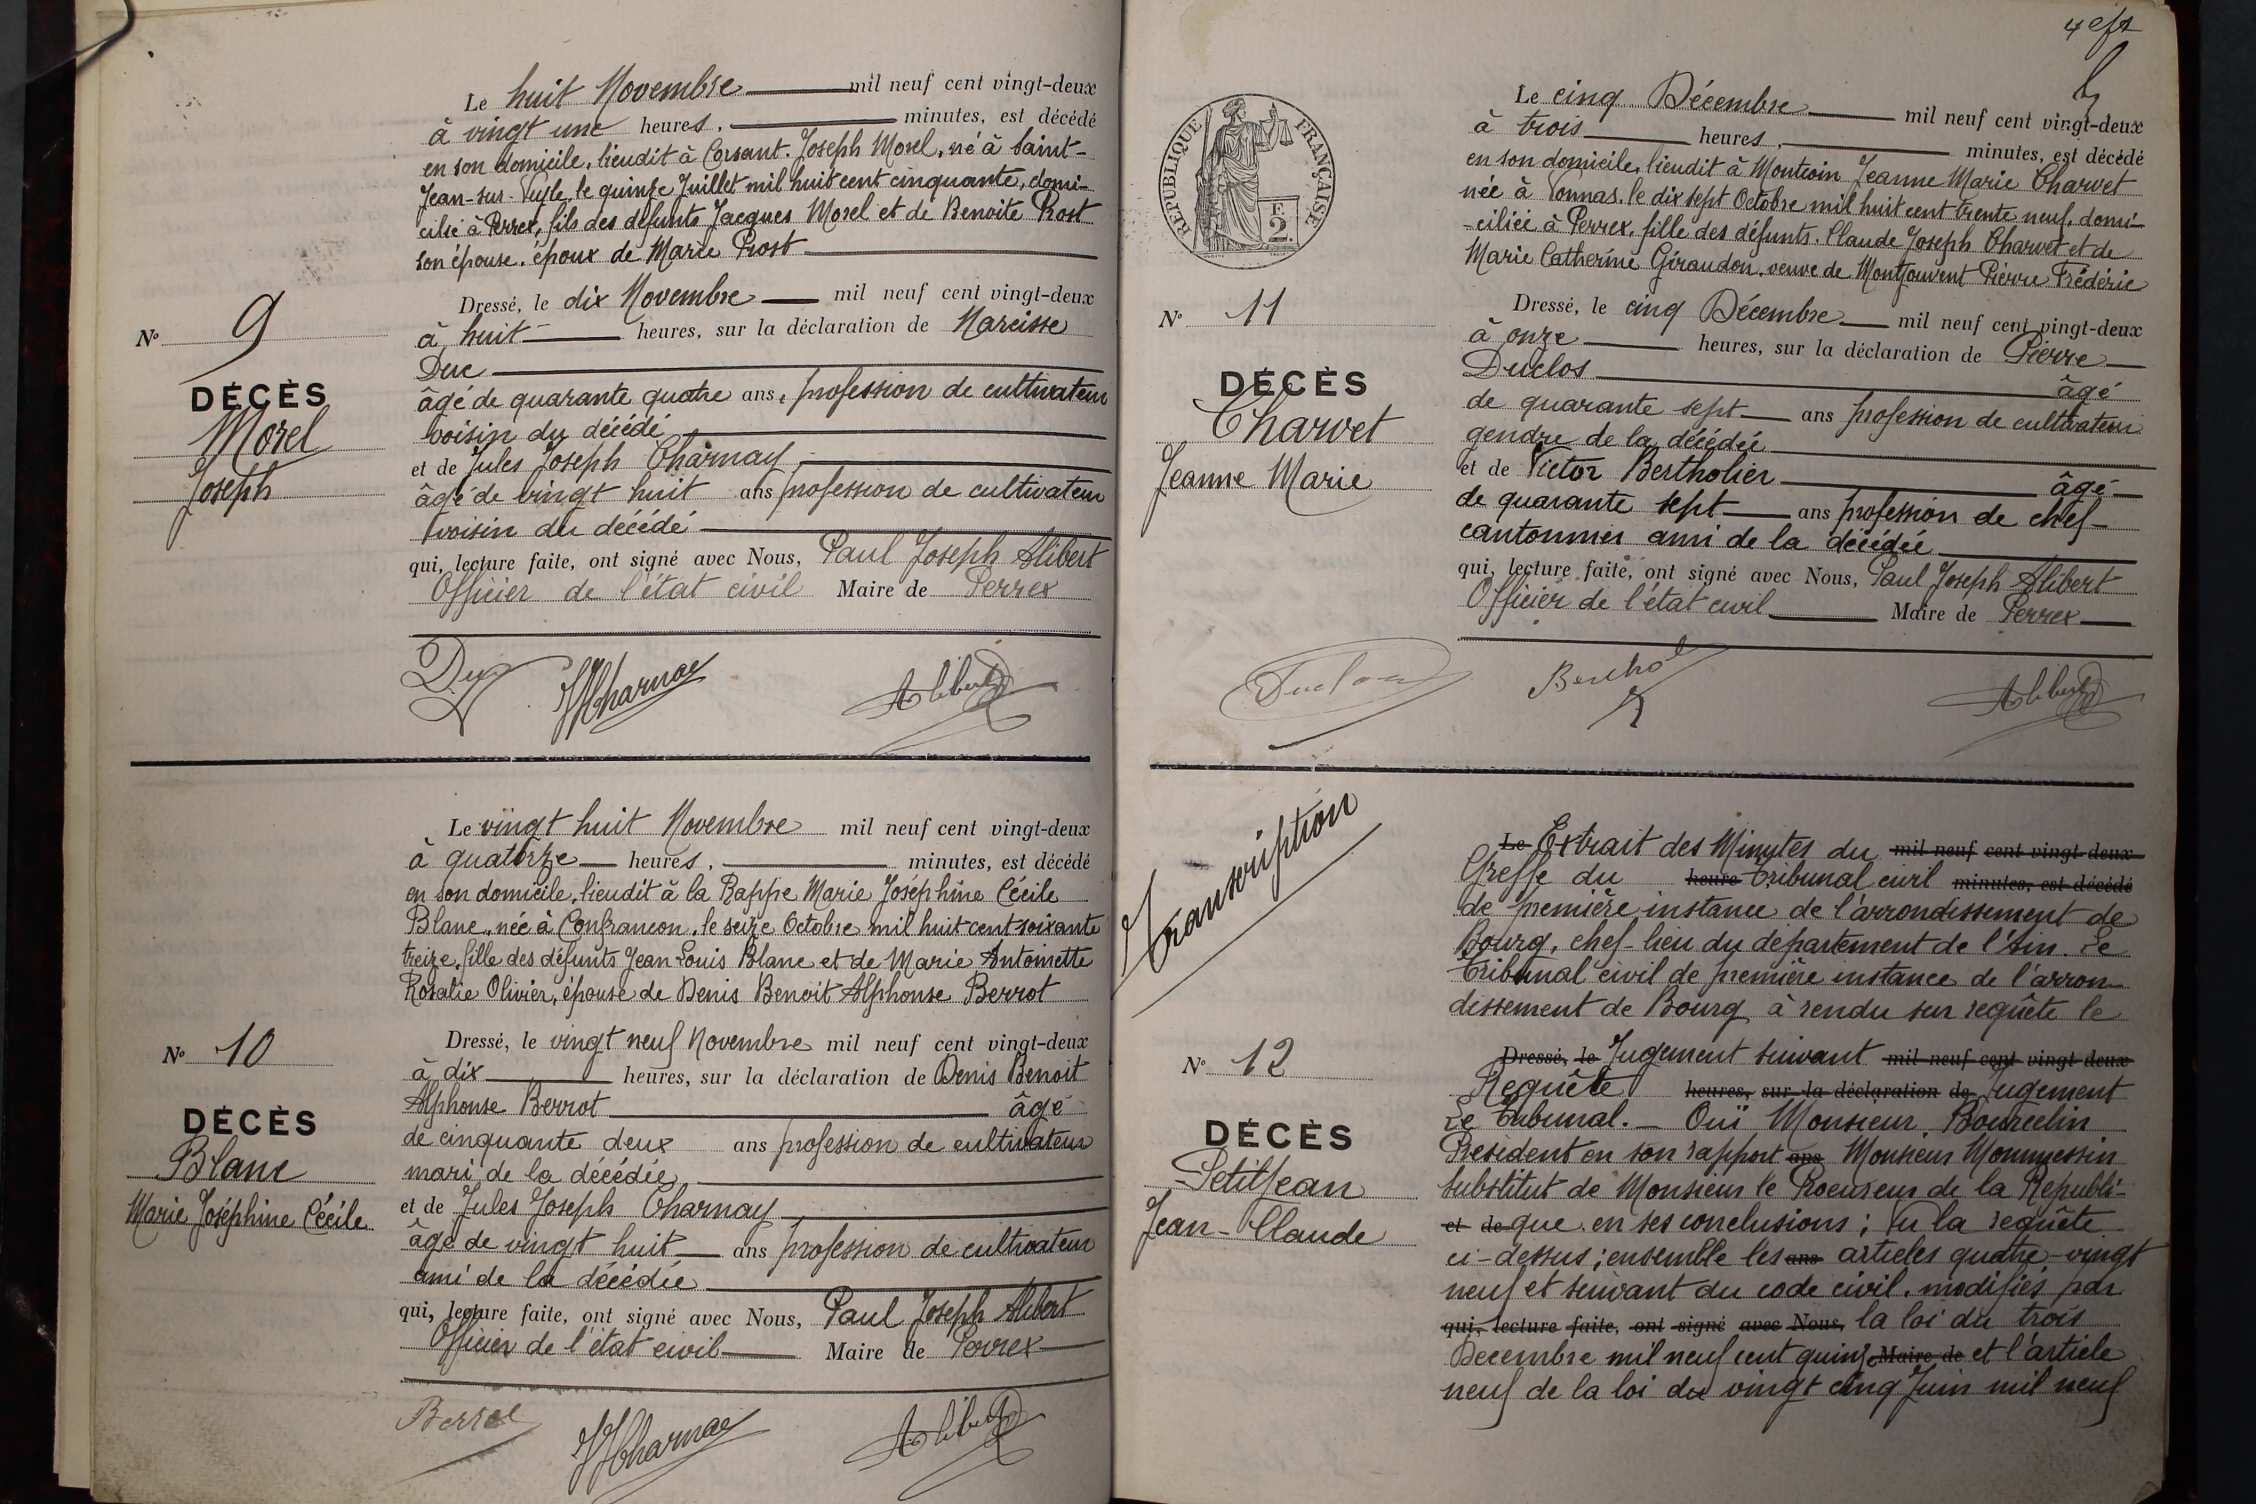 Le huit Novembre mil neuf cent vingt-deux
à vingt une heures, minutes, est décédé
en son domicile, lieudit à Corsant. Joseph Morel, né à Saint-
Jean-sur-Veyle, le quinze Juillet mil huit cent cinquante, domi-
cilié à Perrex, fils des défunts Jacques Morel et de Benoite Prost
son épouse, époux de Marie Prost
Dressé, le dix Novembre mil neuf cent vingt-deux
à huit heures, sur la déclaration de Narcisse
Duc
âgé de quarante quatre ans, profession de cultivateur
voisin du décédé
et de Jules Joseph Charnay
âgé de vingt huit ans profession de cultivateur
voisin du décédé
qui, lecture faite, ont signé avec Nous, Paul Joseph Alibert
Officier de l'état civil Maire de Perrex
Duc JJCharnay Alibert
N° 9
DÉCÈS
Morel
Joseph
Le vingt huit Novembre mil neuf cent vingt-deux
à quatorze heures, minutes, est décédé
en son domicile, lieudit à la Bappe Marie Joséphine Cécile
Blanc, née à Confrancon, le seize Octobre mil huit cent soixante
treize, fille des défunts Jean Louis Blanc et de Marie Antoinette
Rosalie Olivier, épouse de Denis Benoit Alphonse Berrot
Dressé, le vingt neuf Novembre mil neuf cent vingt-deux
à dix heures, sur la déclaration de Denis Benoit
Alphonse Berrot âgé
de cinquante deux ans profession de cultivateur
mari de la décédée
et de Jules Joseph Charnay
âgé de vingt huit ans profession de cultivateur
ami de la décédée
qui, lecture faite, ont signé avec Nous, Paul Joseph Alibert
Officier de l'état civil Maire de Perrex
JJCharnay Alibert
N° 10
DÉCÈS
Blanc
Marie Joséphine Cécile
RÉPUBLIQUE FRANÇAISE
F.
2.
Le cinq Décembre mil neuf cent vingt-deux
à trois heures, minutes, est décédé
en son domicile, lieudit à Montcoin Jeanne Marie Charvet
née à Vonnas, le dix sept Octobre mil huit cent trente neuf, domi-
-ciliée à Perrex, fille des défunts. Claude Joseph Charvet et de
Marie Catherine Giraudon, veuve de Montjouvent Pierre Frédéric
Dressé, le cinq Décembre mil neuf cent vingt-deux
à onze heures, sur la déclaration de Pierre
Duclos âgé
de quarante sept ans profession de cultivateur
gendre de la décédée
et de Victor Bertholier âgé
de quarante sept ans profession de chef-
cantonnier ami de la décédée
qui, lecture faite, ont signé avec Nous, Paul Joseph Alibert
Officier de l'état civil Maire de Perrex
Duclos Alibert
N° 11
DÉCÈS
Charvet
Jeanne Marie
Transcription
Le Extrait des Minutes du mil neuf cent vingt-deux
Greffe du heure tribunal civil minutes, est décédé
de première instance de l'arrondissement de
Bourg, chef-lieu du département de l'Ain. Le
tribunal civil de première instance de l'arron-
dissement de Bourg à rendu sur requête le
Dressé, le Jugement suivant mil neuf cent vingt-deux
Requête heures, sur la déclaration de Jugement
Le tribunal. - Ouï Monsieur Bourcelin
Président en son rapport ans Monsieur Mommessin
substitut de Monsieur le Procureur de la Républi-
et de que en ses conclusions; Vu la requête
ci-dessus; ensemble les ans articles quatre-vingt
neuf et suivant du code civil, modifiés par
qui, lecture faite, ont signé avec Nous, la loi du trois
Decembre mil neuf cent quinze Maire de et l'article
neuf de la loi du vingt cinq Juin mil neuf
N° 12
DÉCÈS
Petitjean
Jean-Claude